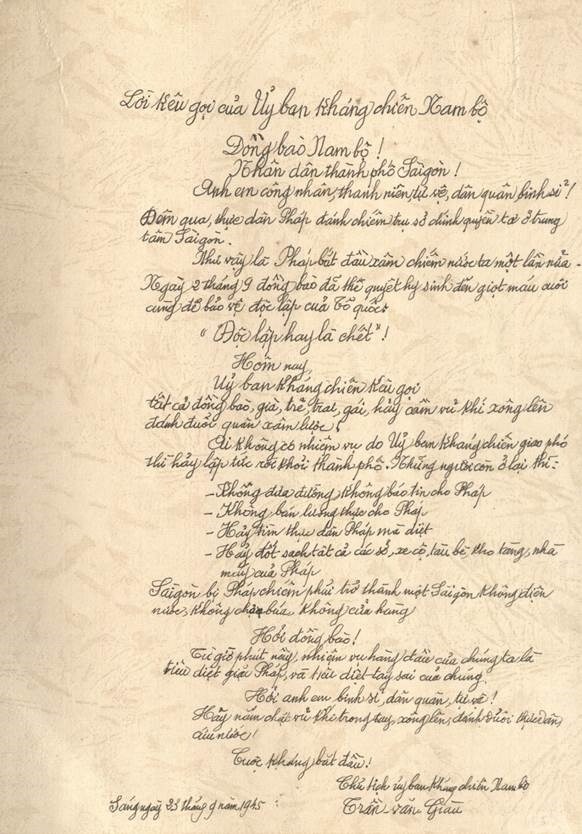 Lời kêu gọi của Uỷ ban kháng chiến Nam bộ
Đồng bào Nam bộ !
Nhân dân thành phố Sàigòn !
Anh em công nhân, thanh niên, tự vệ, dân quân, binh sĩ !
Đêm qua, thực dân Pháp đánh chiếm trụ sở chính quyền ta ở trung
tâm Sàigòn.
Như vậy là Pháp bắt đầu xâm chiếm nước ta một lần nữa -
Ngày 2 tháng 9 đồng bào đã thề quyết hy sinh đến giọt máu cuối
cùng để bảo vệ độc lập của Tổ quốc:
" Độc lập hay là chết" !
Hôm nay,
Uỷ ban kháng chiến kêu gọi
tất cả đồng bào, già, trẻ, trai, gái, hãy cầm vũ khí xông lên
đánh đuổi quân xâm lược !
Ai không có nhiệm vụ do Uỷ ban kháng chiến giao phó
thì hãy lập tức rời khỏi thành phố. Những người còn ở lại thì:
- Không đưa đường, không báo tin cho Pháp
- Không bán lương thực cho Pháp
- Hãy tìm thực dân Pháp mà diệt
- Hãy đốt sạch tất cả các sở, xe cộ, tàu bè, kho tàng, nhà
máy của Pháp
Sàigòn bị Pháp chiếm phải trở thành một Sàigòn không điện
nước, không chợ búa không cửa hàng
Hỡi đồng bào!
Từ giờ phút này, nhiệm vụ hàng đầu của chúng ta là
tiêu diệt giặc Pháp, và tiêu diệt tay sai của chúng.
Hỡi anh em binh sĩ, dân quân, tự vệ !
Hãy nắm chặt vũ khí trong tay, xông lên, đánh đuổi thực dân,
cứu nước !
Cuộc kháng bắt đầu !
Chủ tịch ủy ban kháng chiến Nam bộ
Sáng ngày 23 tháng 9 năm 1945
Trần văn Giàu